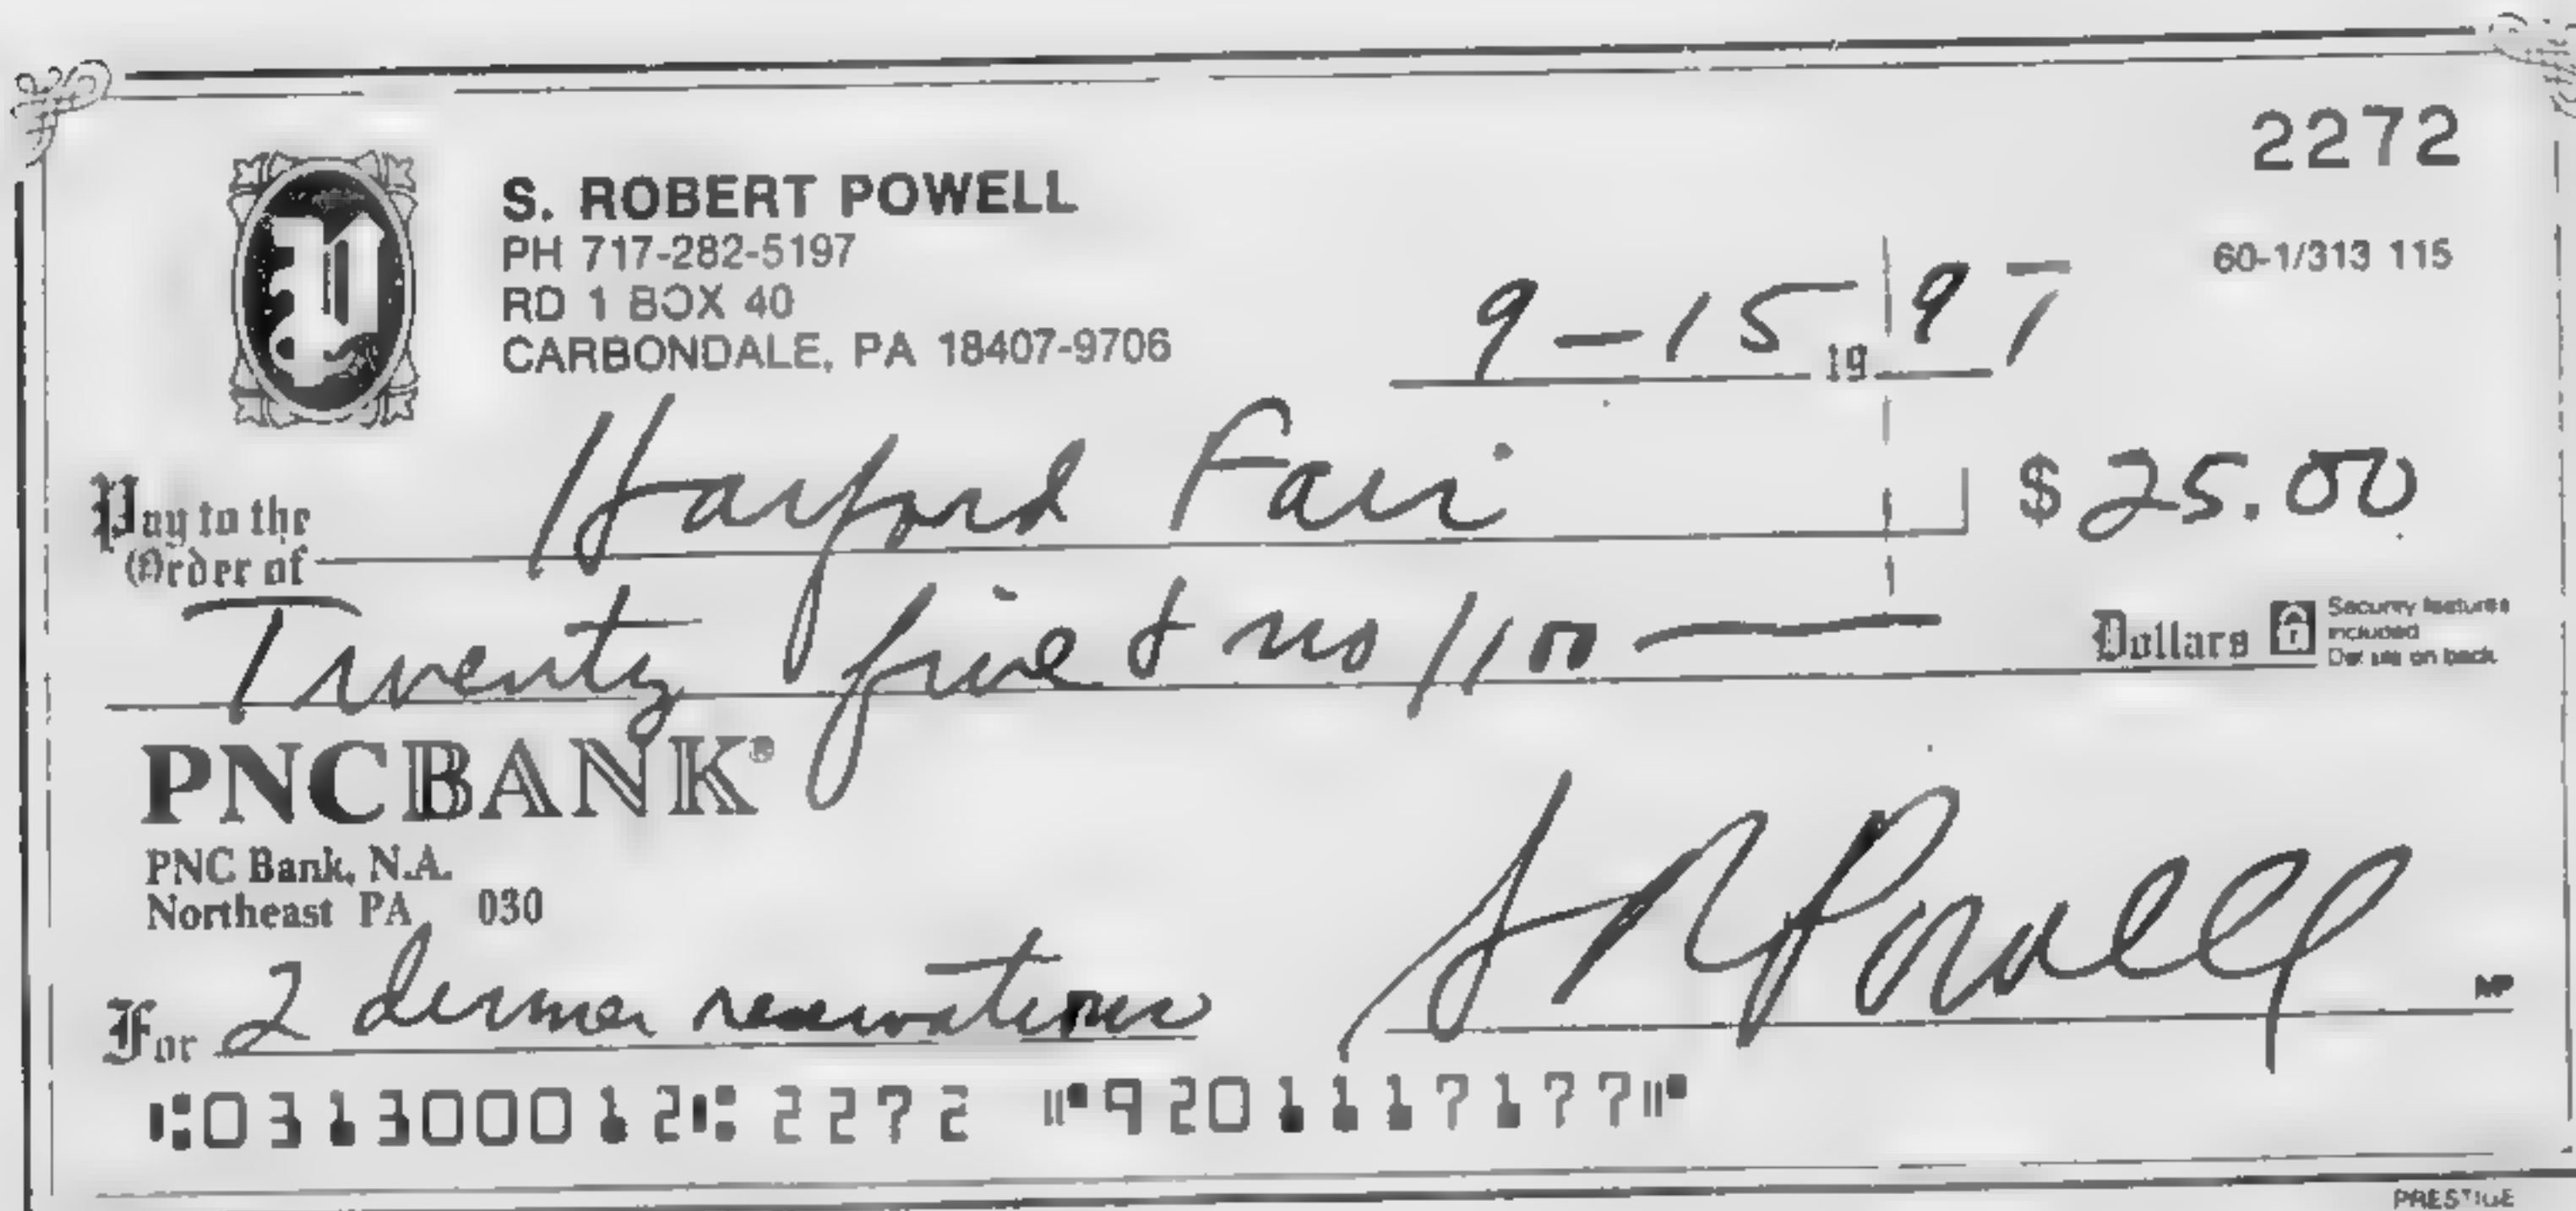 2272
S. ROBERT POWELL
PH 717-282-5197
RD 1 BOX 40
CARBONDALE, PA 18407-9706
60-1/313 115
9-15 19 97
Pay to the Order of Harford Fair $ 25.00
Twenty five & no/100 Dollars
Security features included
Details on back
PNCBANK®
PNC Bank, N.A.
Northeast PA 030
For 2 dinner reservations S R Powell
MP
⑆031300012⑆ 2272 ⑈9201117177⑈
PRESTIGE